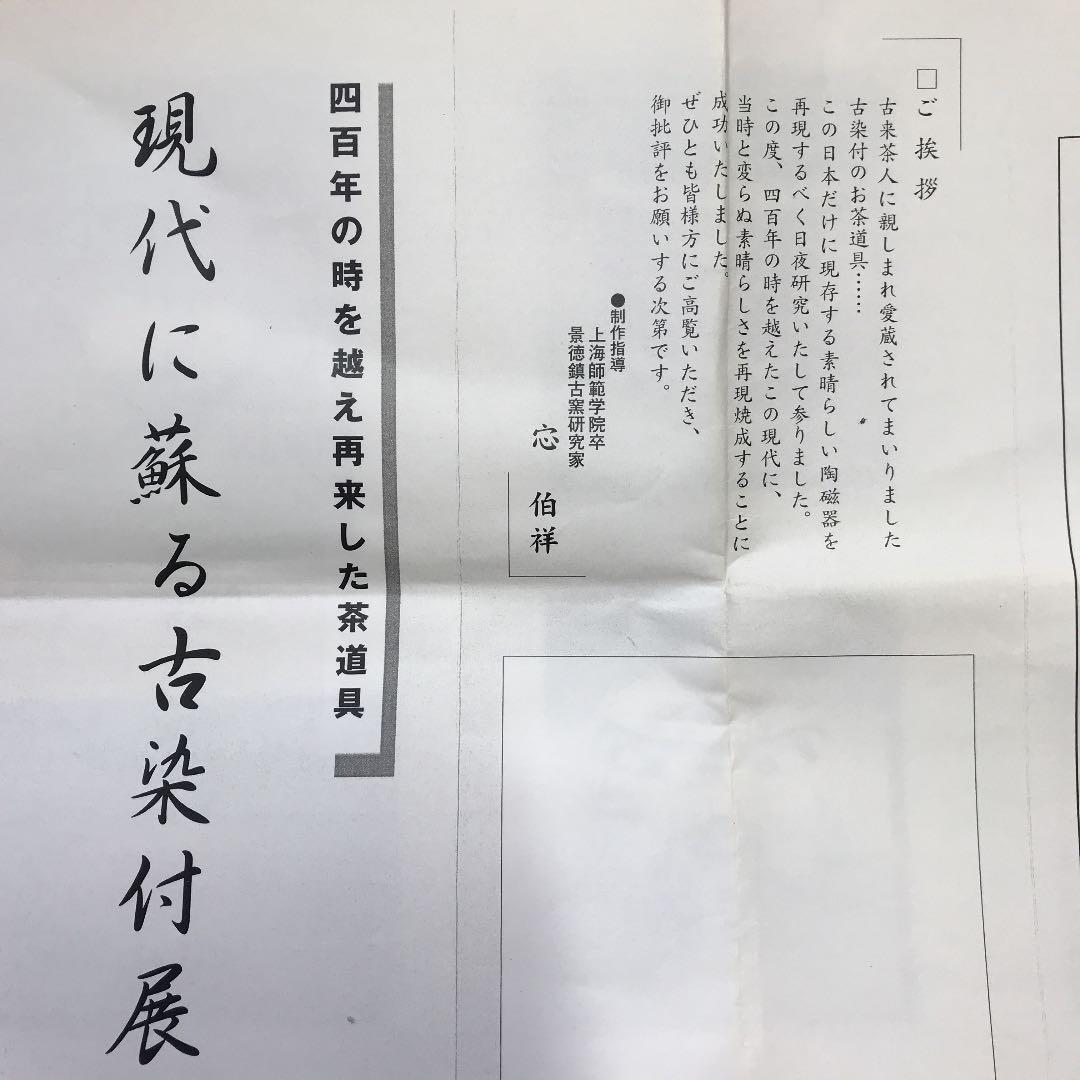 □ご挨拶
古来茶人に親しまれ愛蔵されてまいりました
古染付のお茶道具……
この日本だけに現存する素晴らしい陶磁器を
再現するべく日夜研究いたして参りました。
この度、四百年の時を越えたこの現代に、
当時と変らぬ素晴らしさを再現焼成することに
成功いたしました。
ぜひとも皆様方にご高覧いただき、
御批評をお願いする次第です。
●制作指導
上海師範学院卒
景徳鎮古窯研究家
伯祥
四百年の時を越え再来した茶道具
現代に蘇る古染付展